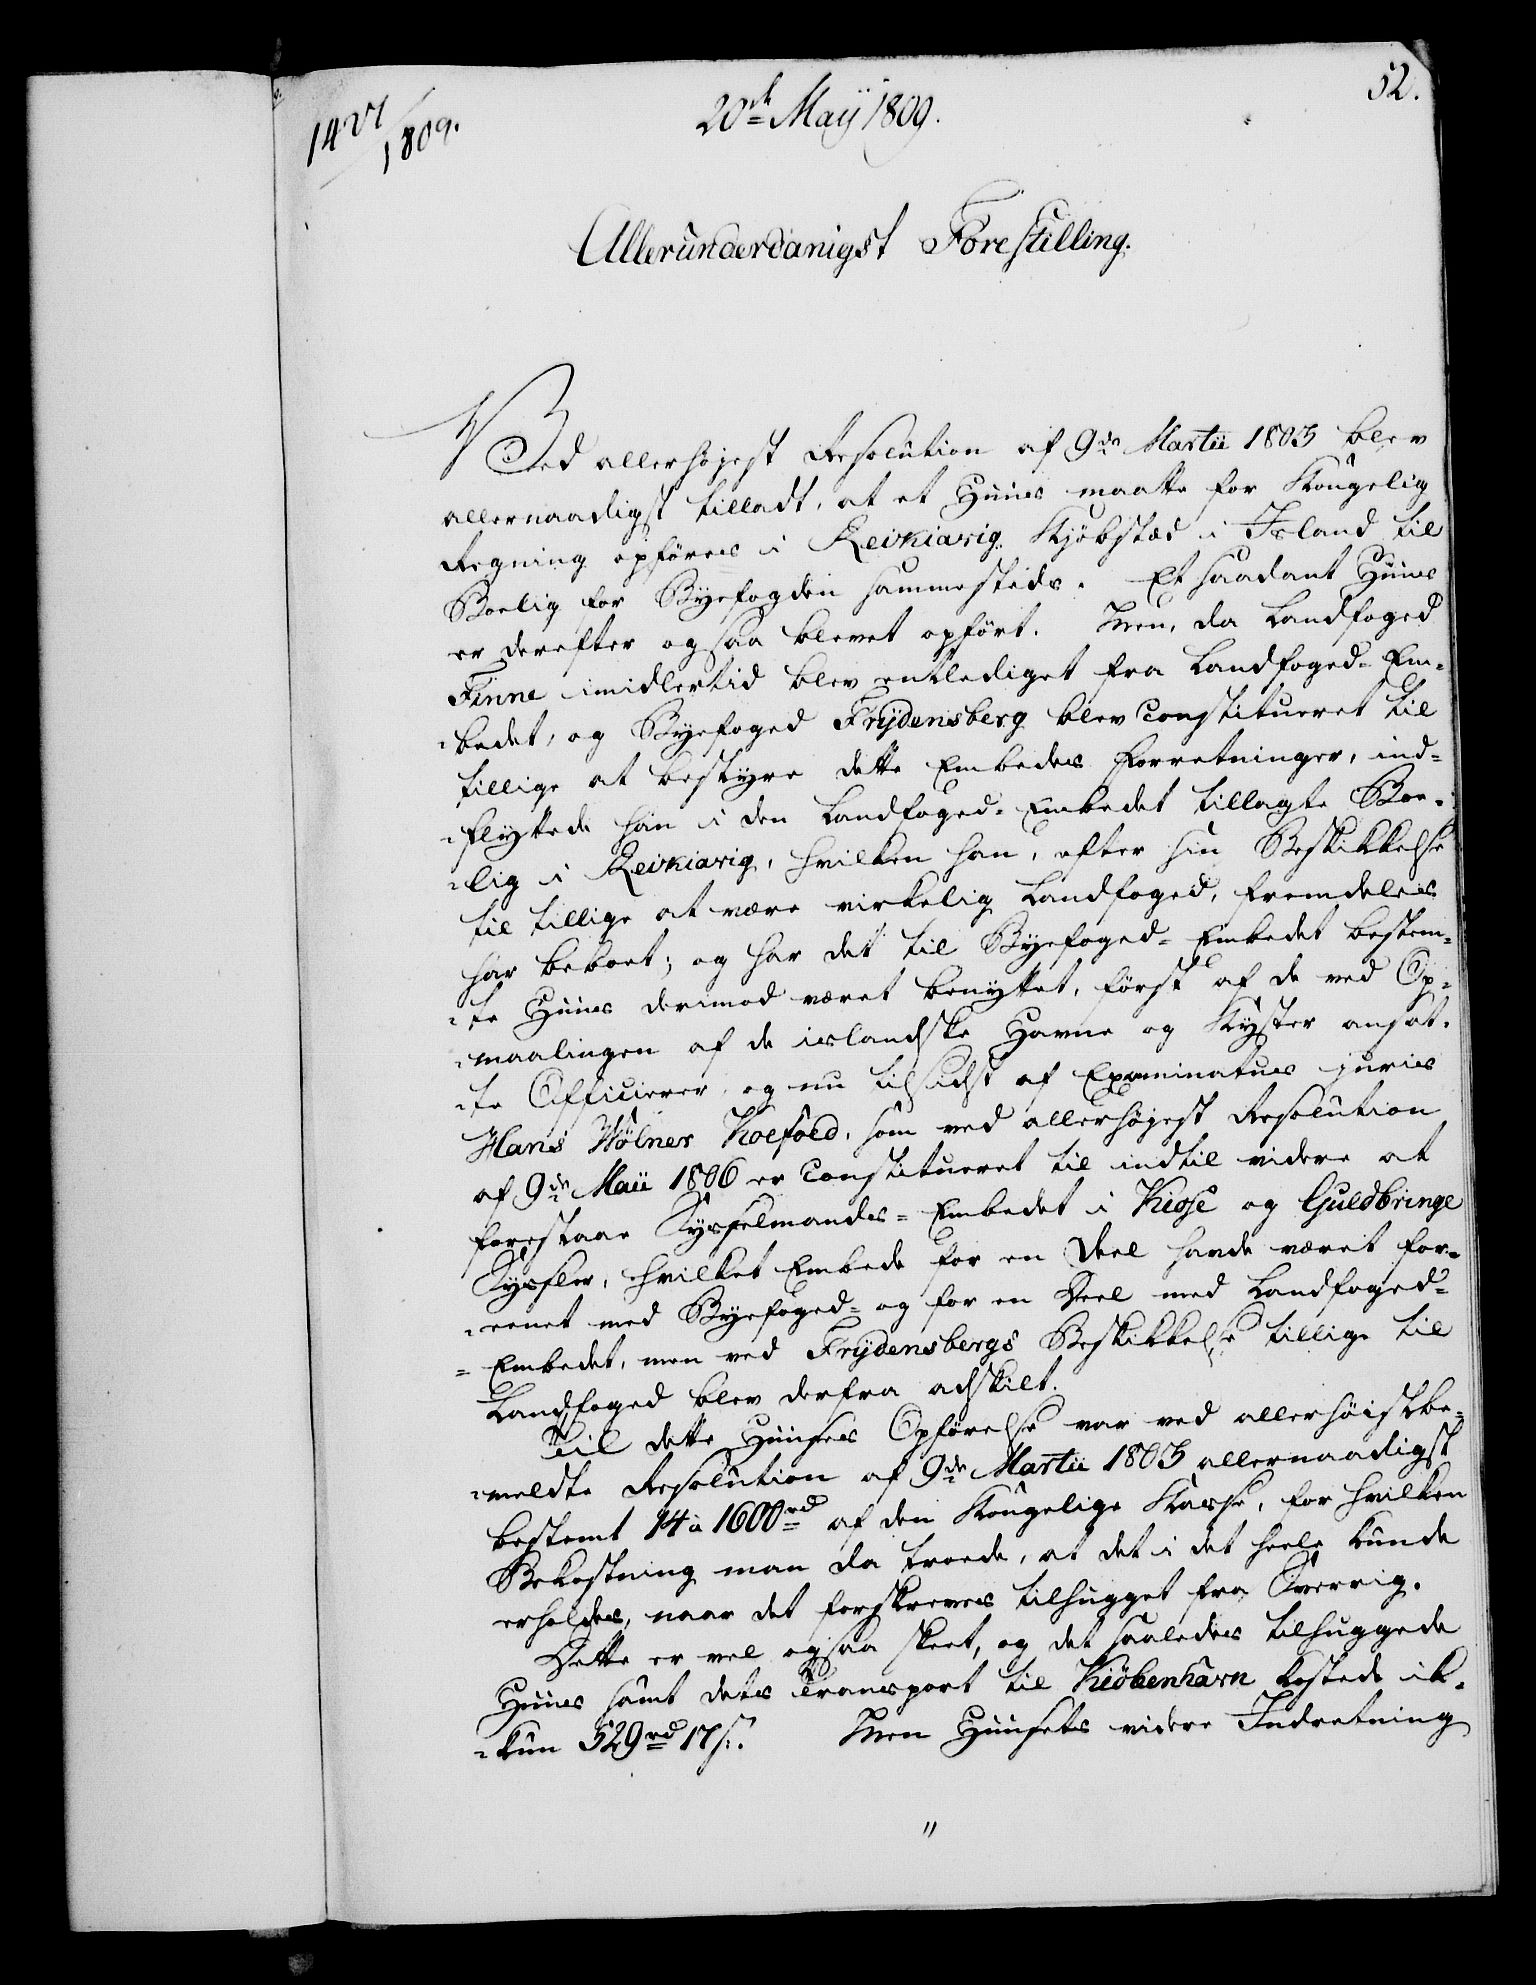 52.
20de Maÿ 1809.
14 VI/1809.
Allerunderdanigst Forestilling.
Ved allerhøjest Resolution af 9de Martii 1803 blev
allernaadigst tilladt, at et Huus maatte for Kongelig
Regning opføres i Reikiavig Kjøbstæd i Island til
Boelig for Byefogden sammesteds. Et saadant Huus
er derefter ogsaa blevet opført. Men, da Landfoged
Finne imidlertid blev entlediget fra Landfoged-Em-
-bedet, og Byefoged Frydensberg blev constitueret til
tillige at bestyre dette Embedes Forretninger, ind-
-flyttede han i den Landfoged-Embedet tillagte Boe-
-lig i Reikiavig, hvilken han, efter sin Beskikkelse
til tillige at være virkelig Landfoged, fremdeles
har beboet; og har det til Byefoged-Embedet bestem-
-te Huus derimod været benyttet, først af de ved Op-
-maalingen af de islandske Havne og Kyster ansat-
-te Officierer, og nu tilsidst af Examinatus juris
Hans Wölner Koefoed, som ved allerhøjest Resolution
af 9de Maii 1806 er constitueret til indtil videre at
forestaae Sysselmands-Embedet i Kiose og Guldbringe
Sysler, hvilket Embede for en Deel havde været for-
-eenet med Byefoged- og for en Deel med Landfoged-
-Embedet, men ved Frydensbergs Beskikkelse tillige til
Landfoged blev derfra adskilt.
Til dette Huuses Opførelse var ved allerhøistbe-
-meldte Resolution af 9de Martii 1803 allernaadigst
bestemt 14 à 1600 rd af den Kongelige Kasse, for hvilken
Bekostning man da troede, at det i det heele kunde
erholdes, naar det forskreves tilhugget fra Sverrig.
Dette er vel ogsaa skeet, og det saaledes tilhuggede
Huus samt dets Transport til Kiöbenhavn kostede ik-
-kun 529 rd 17 s. Men Huusets videre Indretning
"